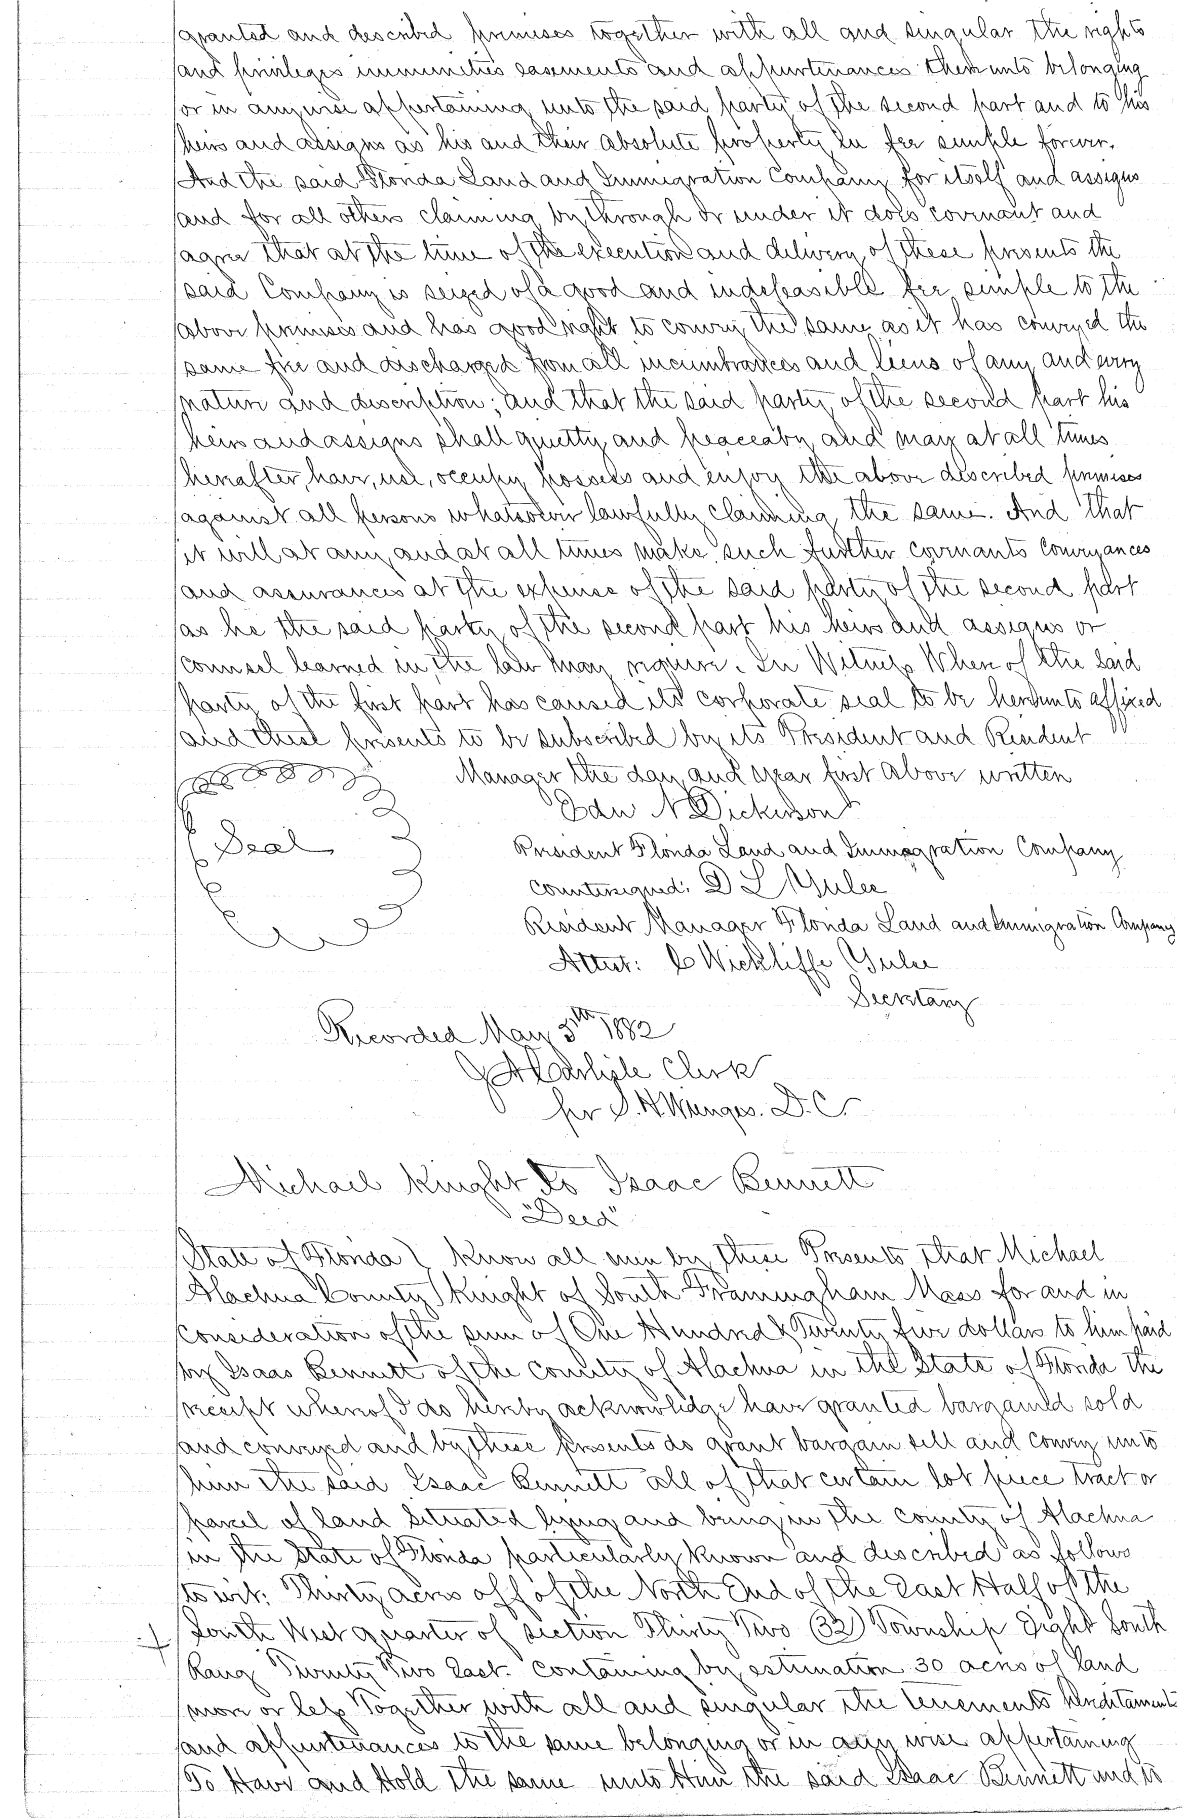 granted and described premises together with all and singular the rights
and privileges immunities easements and appurtenances thereunto belonging
or in anywise appertaining unto the said party of the second part and to his
heirs and assigns as his and their absolute property in fee simple forever.
And the said Florida Land and Immigration Company for itself and assigns
and for all others claiming by through or under it does covenant and
agree that at the time of the execution and delivery of these presents the
said Company is seized of a good and indefeasible fee simple to the
above premises and has good right to convey the same as it has conveyed the
same free and discharged from all incumbrances and liens of any and every
nature and discription; and that the said party of the second part his
heirs and assigns shall quietly and peaceaby and may at all times
hereafter, have, use, occupy possess and enjoy the above described premises
against all persons whatsoever lawfully claiming the same. And that
it will at any and at all times make such further covenants conveyances
and assurances at the expense of the said party of the second part
as he the said party of the second part his heirs and assigns or
counsel learned in the law may require. In Witness Where of the said
party of the first part has caused its corporate seal to be hereunto affixed
and these presents to be subscribed by its President and Resident
Manager the day and year first above written
Seal
Edw N Dickerson
President Florida Land and Immagration Company
countersigned: D L Yulee
Resident Manager Florida Land and Immigration Company
Attest: C Wickliffe Yulee
Secretary
Recorded May 5th 1882
J A Carlisle Clerk
per S. H. Wienges. D. C.
Michael Knight to Isaac Bennett
"Deed"
State of Florida } Know all men by these Presents that Michael
Alachua County } Knight of South Framingham Mass for and in
consideration of the sum of One Hundred & Twenty five dollars to him paid
by Isaac Bennett of the County of Alachua in the State of Florida the
receipt whereof I do hereby acknowledge have granted bargained sold
and conveyed and by these presents do grant bargain sell and convey unto
him the said Isaac Bennett all of that certain lot piece tract or
parcel of land situated lying and being in the county of Alachua
in the State of Florida particularly known and described as follows
to wit: Thirty acres off of the North End of the East Half of the
South West quarter of section Thirty Two (32) Township Eight South
Rang Twenty Two East. containing by estimation 30 acres of land
more or less Together with all and singular the tenements hereditaments
and appurtenances to the same belonging or in any wise appertaining
To Have and Hold the same unto Him the said Isaac Bennett and to